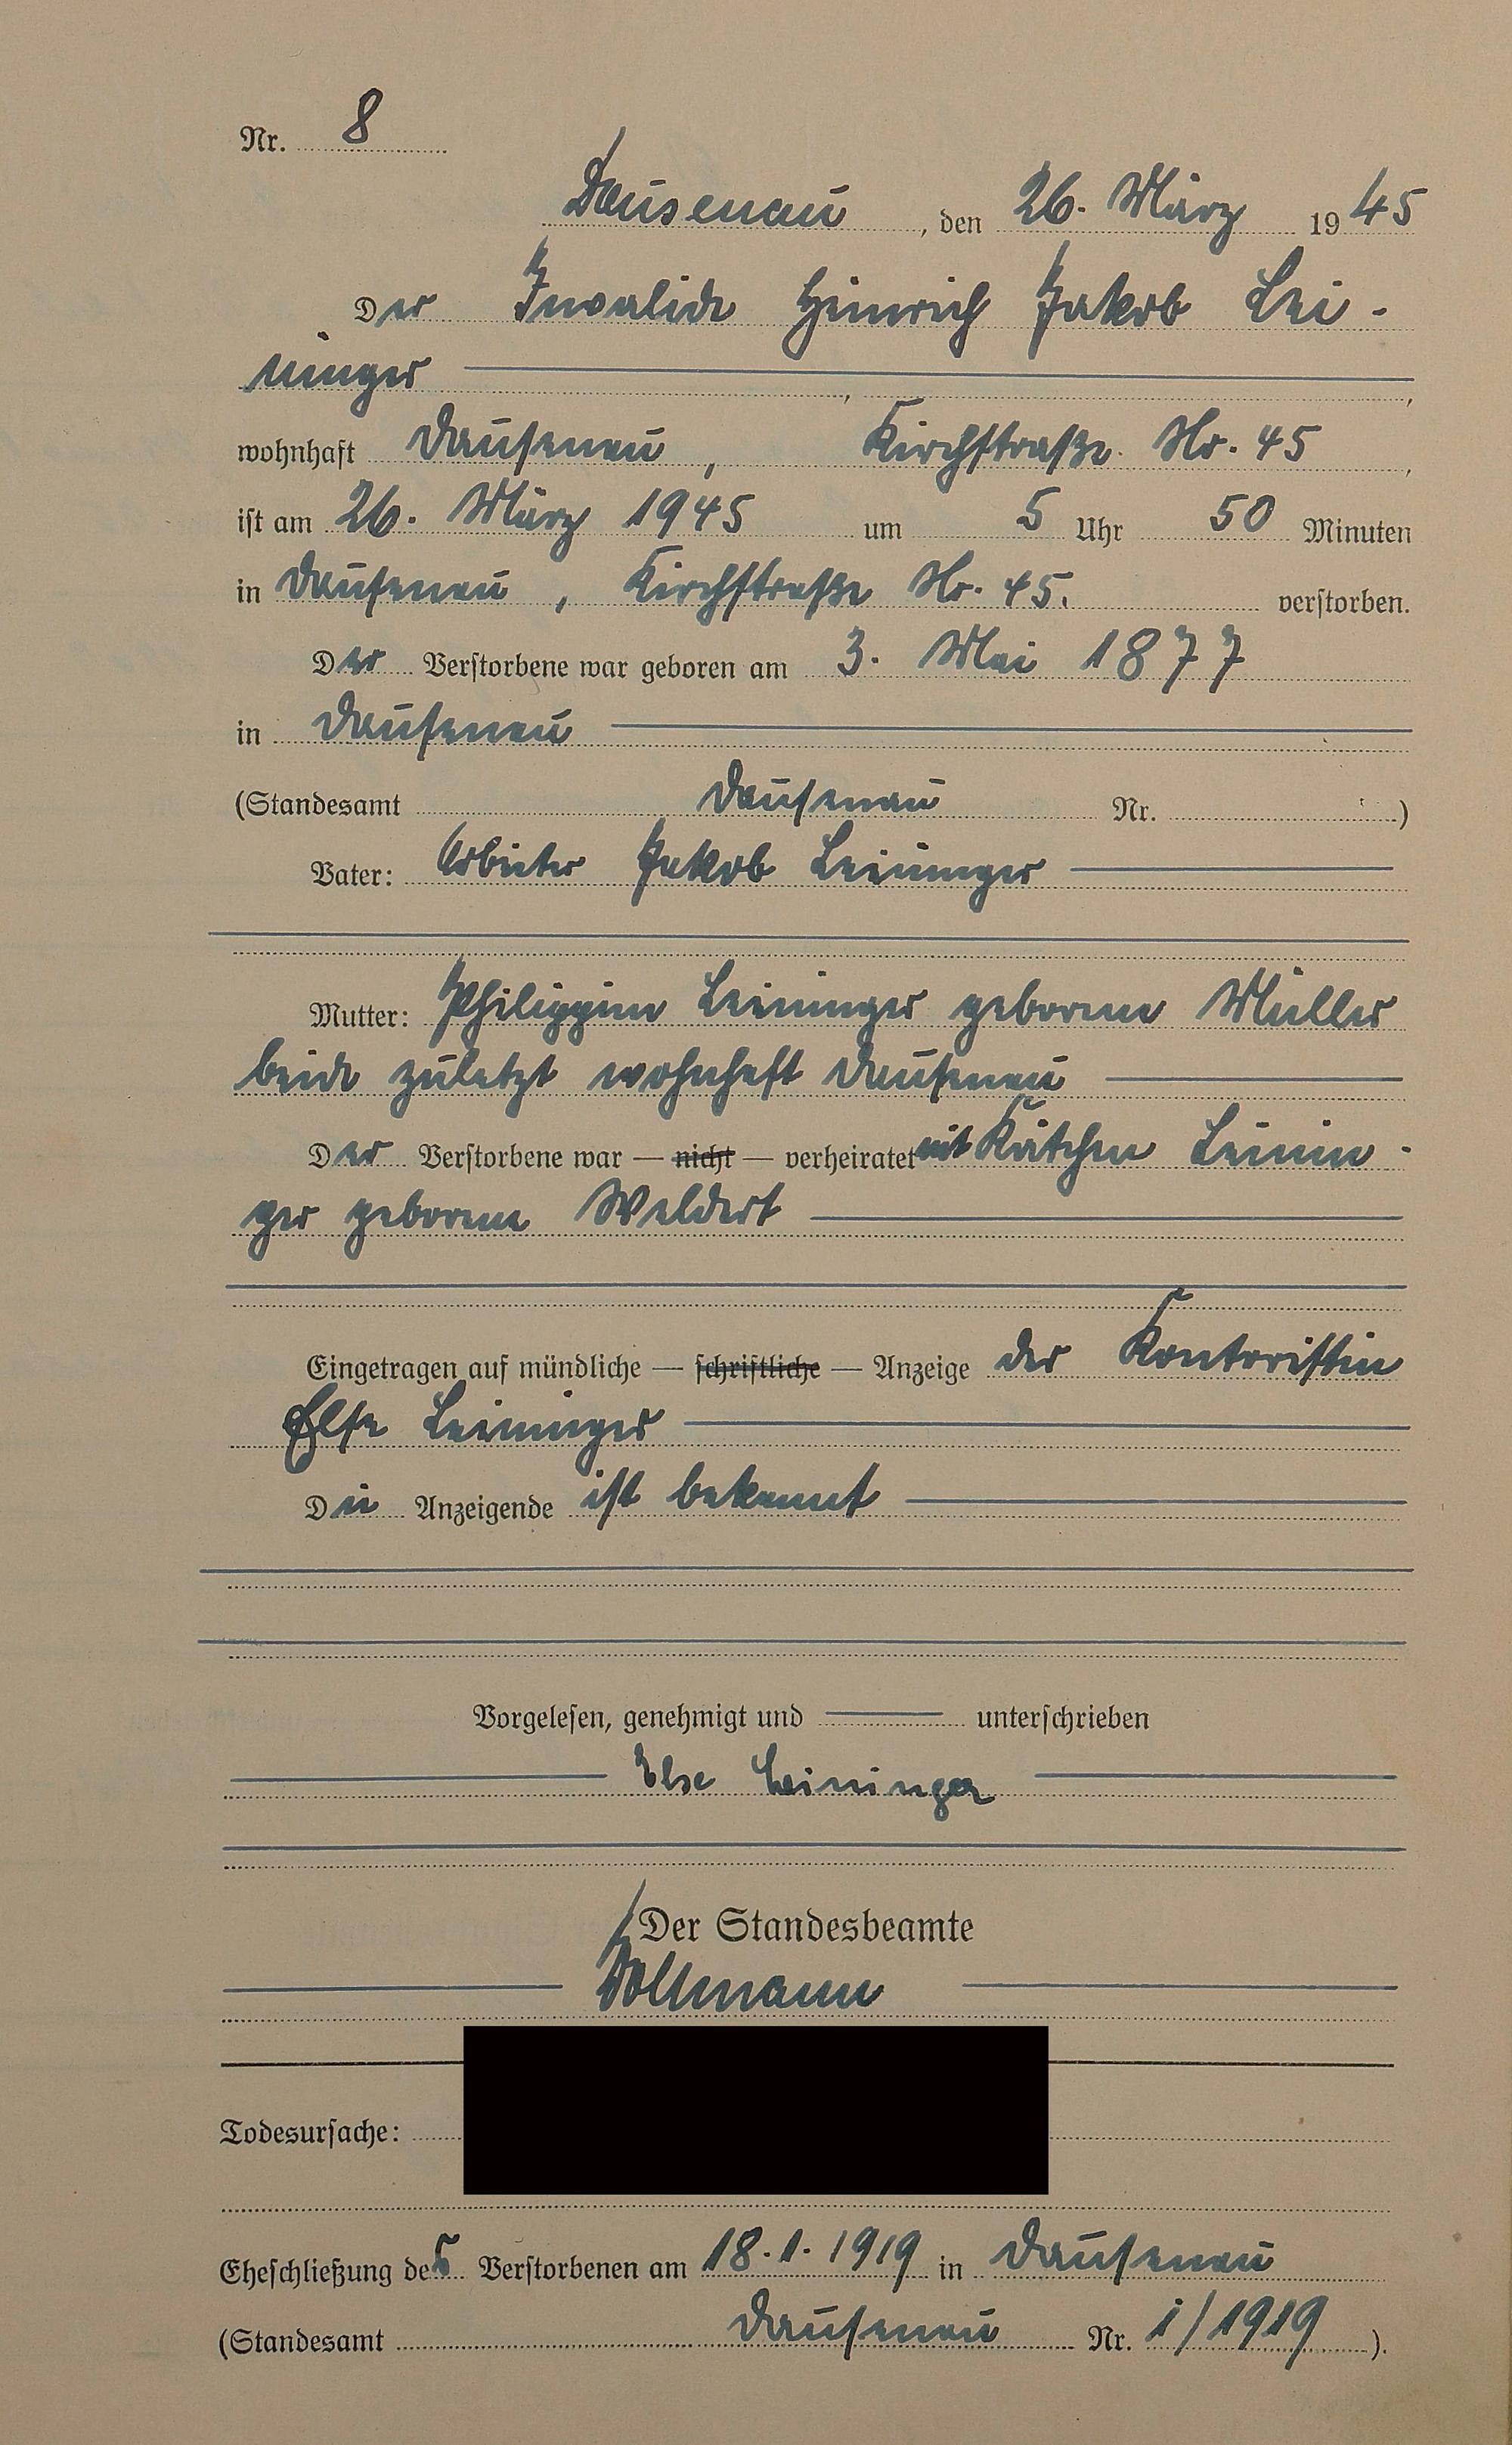 Nr. 8
Dausenau, den 26. März 1945
Der Invalide Heinrich Jakob Lei-
ninger
wohnhaft Dausenau, Kirchstraße Nr. 45,
ist am 26. März 1945 um 5 Uhr 50 Minuten
in Dausenau, Kirchstraße Nr. 45. verstorben.
Der Verstorbene war geboren am 3. Mai 1877
in Dausenau
(Standesamt Dausenau Nr. )
Vater: Arbeiter Jakob Leininger
Mutter: Philippine Leininger geborene Müller
beide zuletzt wohnhaft Dausenau
Der Verstorbene war — nicht — verheiratet mit Kätchen Leinin-
ger geborene Weldert
Eingetragen auf mündliche — schriftliche — Anzeige der Kontoristin
Else Leininger
Die Anzeigende ist bekannt
Vorgelesen, genehmigt und unterschrieben
Else Leininger
Der Standesbeamte
Todesursache:
Eheschließung des Verstorbenen am 18.1.1919 in Dausenau
(Standesamt Dausenau Nr. 1/1919).